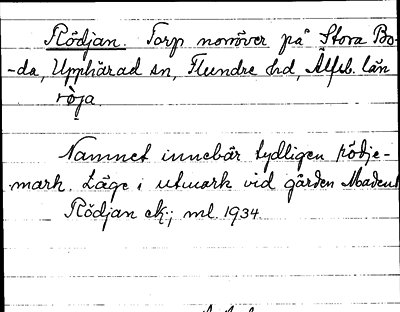 Rödjan. Torp norröver på Stora Bo-
-da, Upphärad sn, Flundre hd, Älfsb. län
rö̀ja
Namnet innebär tydligen rödje-
mark. Läge i utmark vid gården Maden
Rödjan ek.; ml. 1934